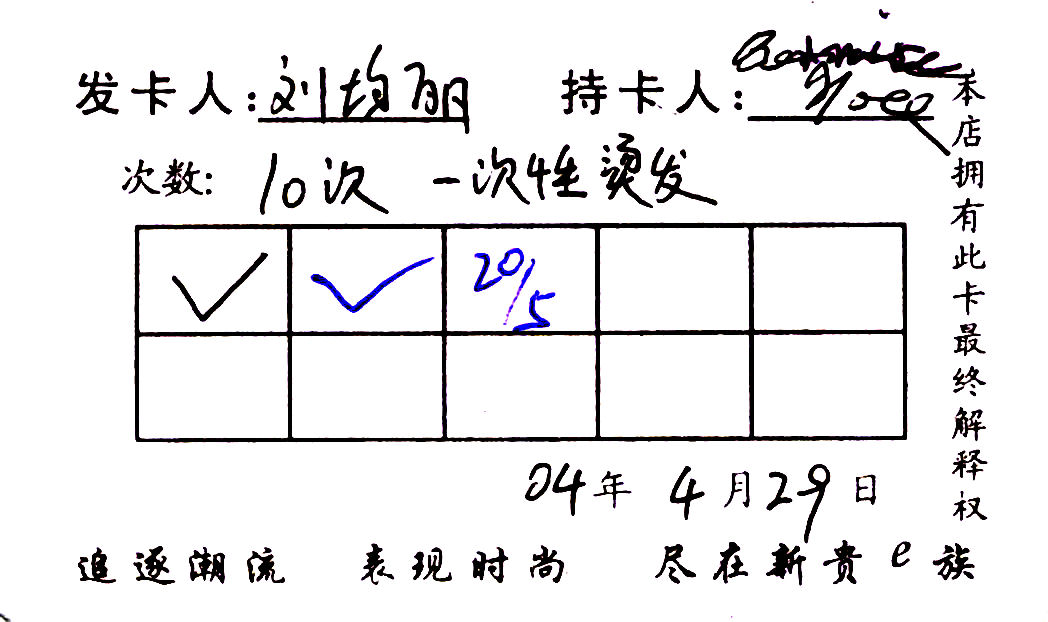 发卡人:刘均丽 持卡人:
次数: 10次 一次性烫发
20/5
04年 4月29日
追逐潮流 表现时尚 尽在新贵e族
本店拥有此卡最终解释权